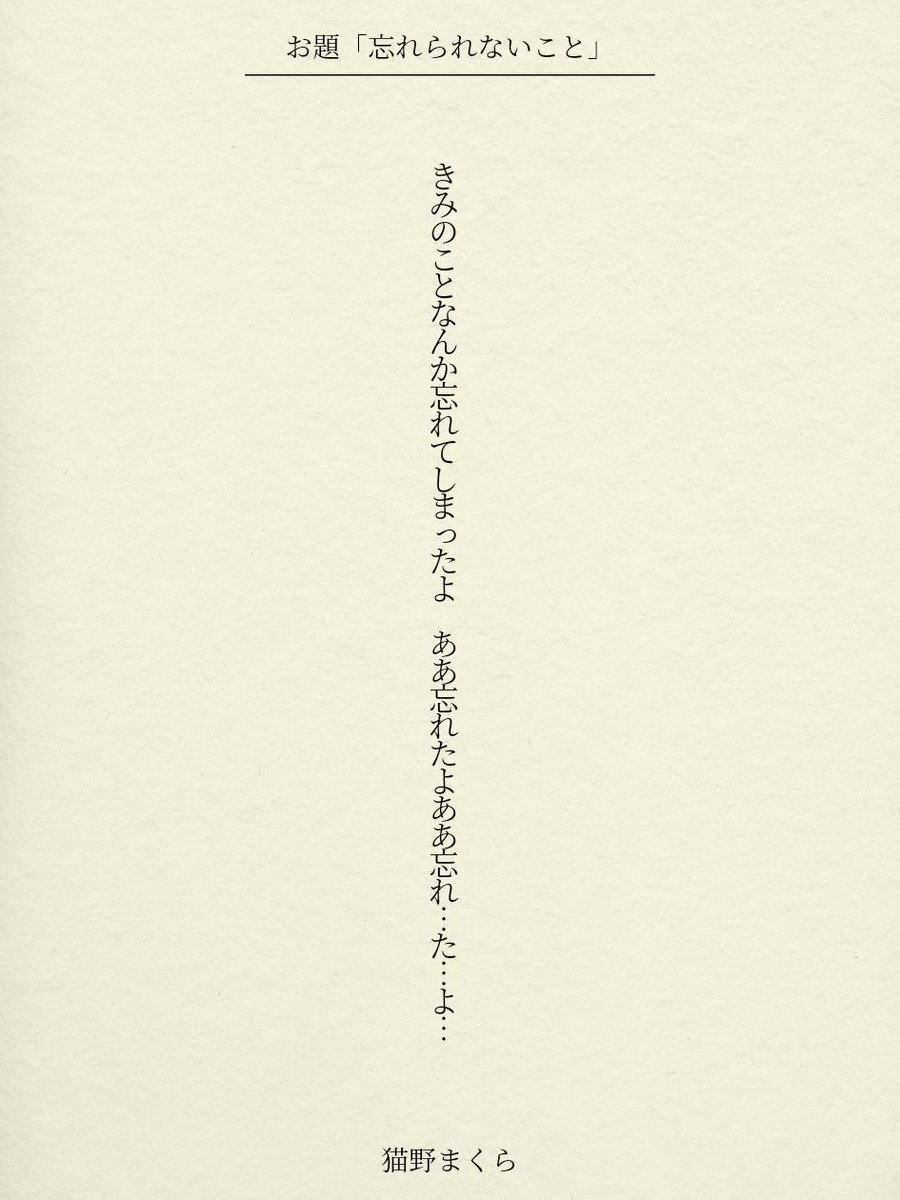 お題「忘れられないこと」
きみのことなんか忘れてしまったよ　ああ忘れたよああ忘れ…た…よ…
猫野まくら